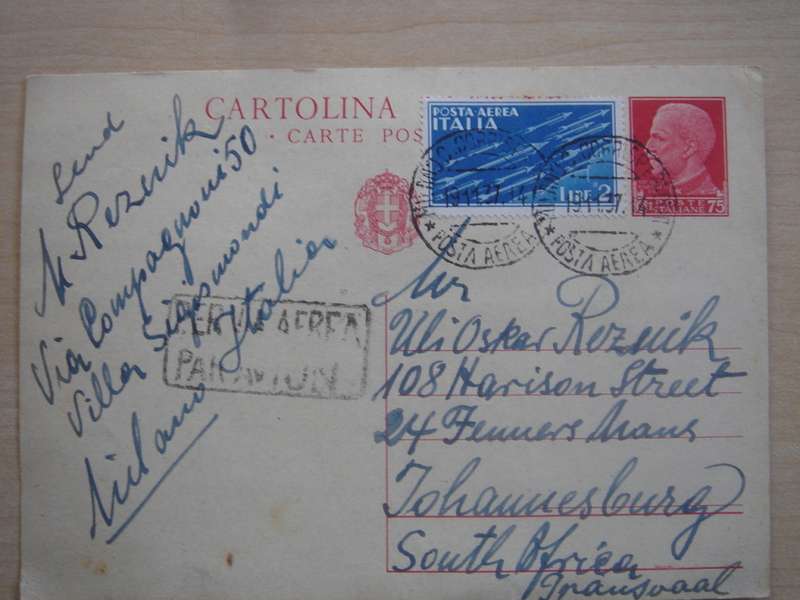 CARTOLINA
CARTE POS
POSTA AEREA
ITALIA
LIRE 2
POSTE
ITALIANE 75
19.11.37.14
POSTA AEREA
19.11.37.14
POSTA AEREA
Send
M Reznik
Via Compagnoni 50
Villa Sigismondi
Milano Italia
PER VIA AEREA
PAR AVION
Mr
Uli Oskar Reznik
108 Harison Street
24 Fenners Mans
Johannesburg
South Africa
Transvaal